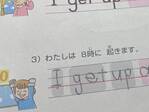 I get up
3) わたしは 8時に 起きます。
I get up